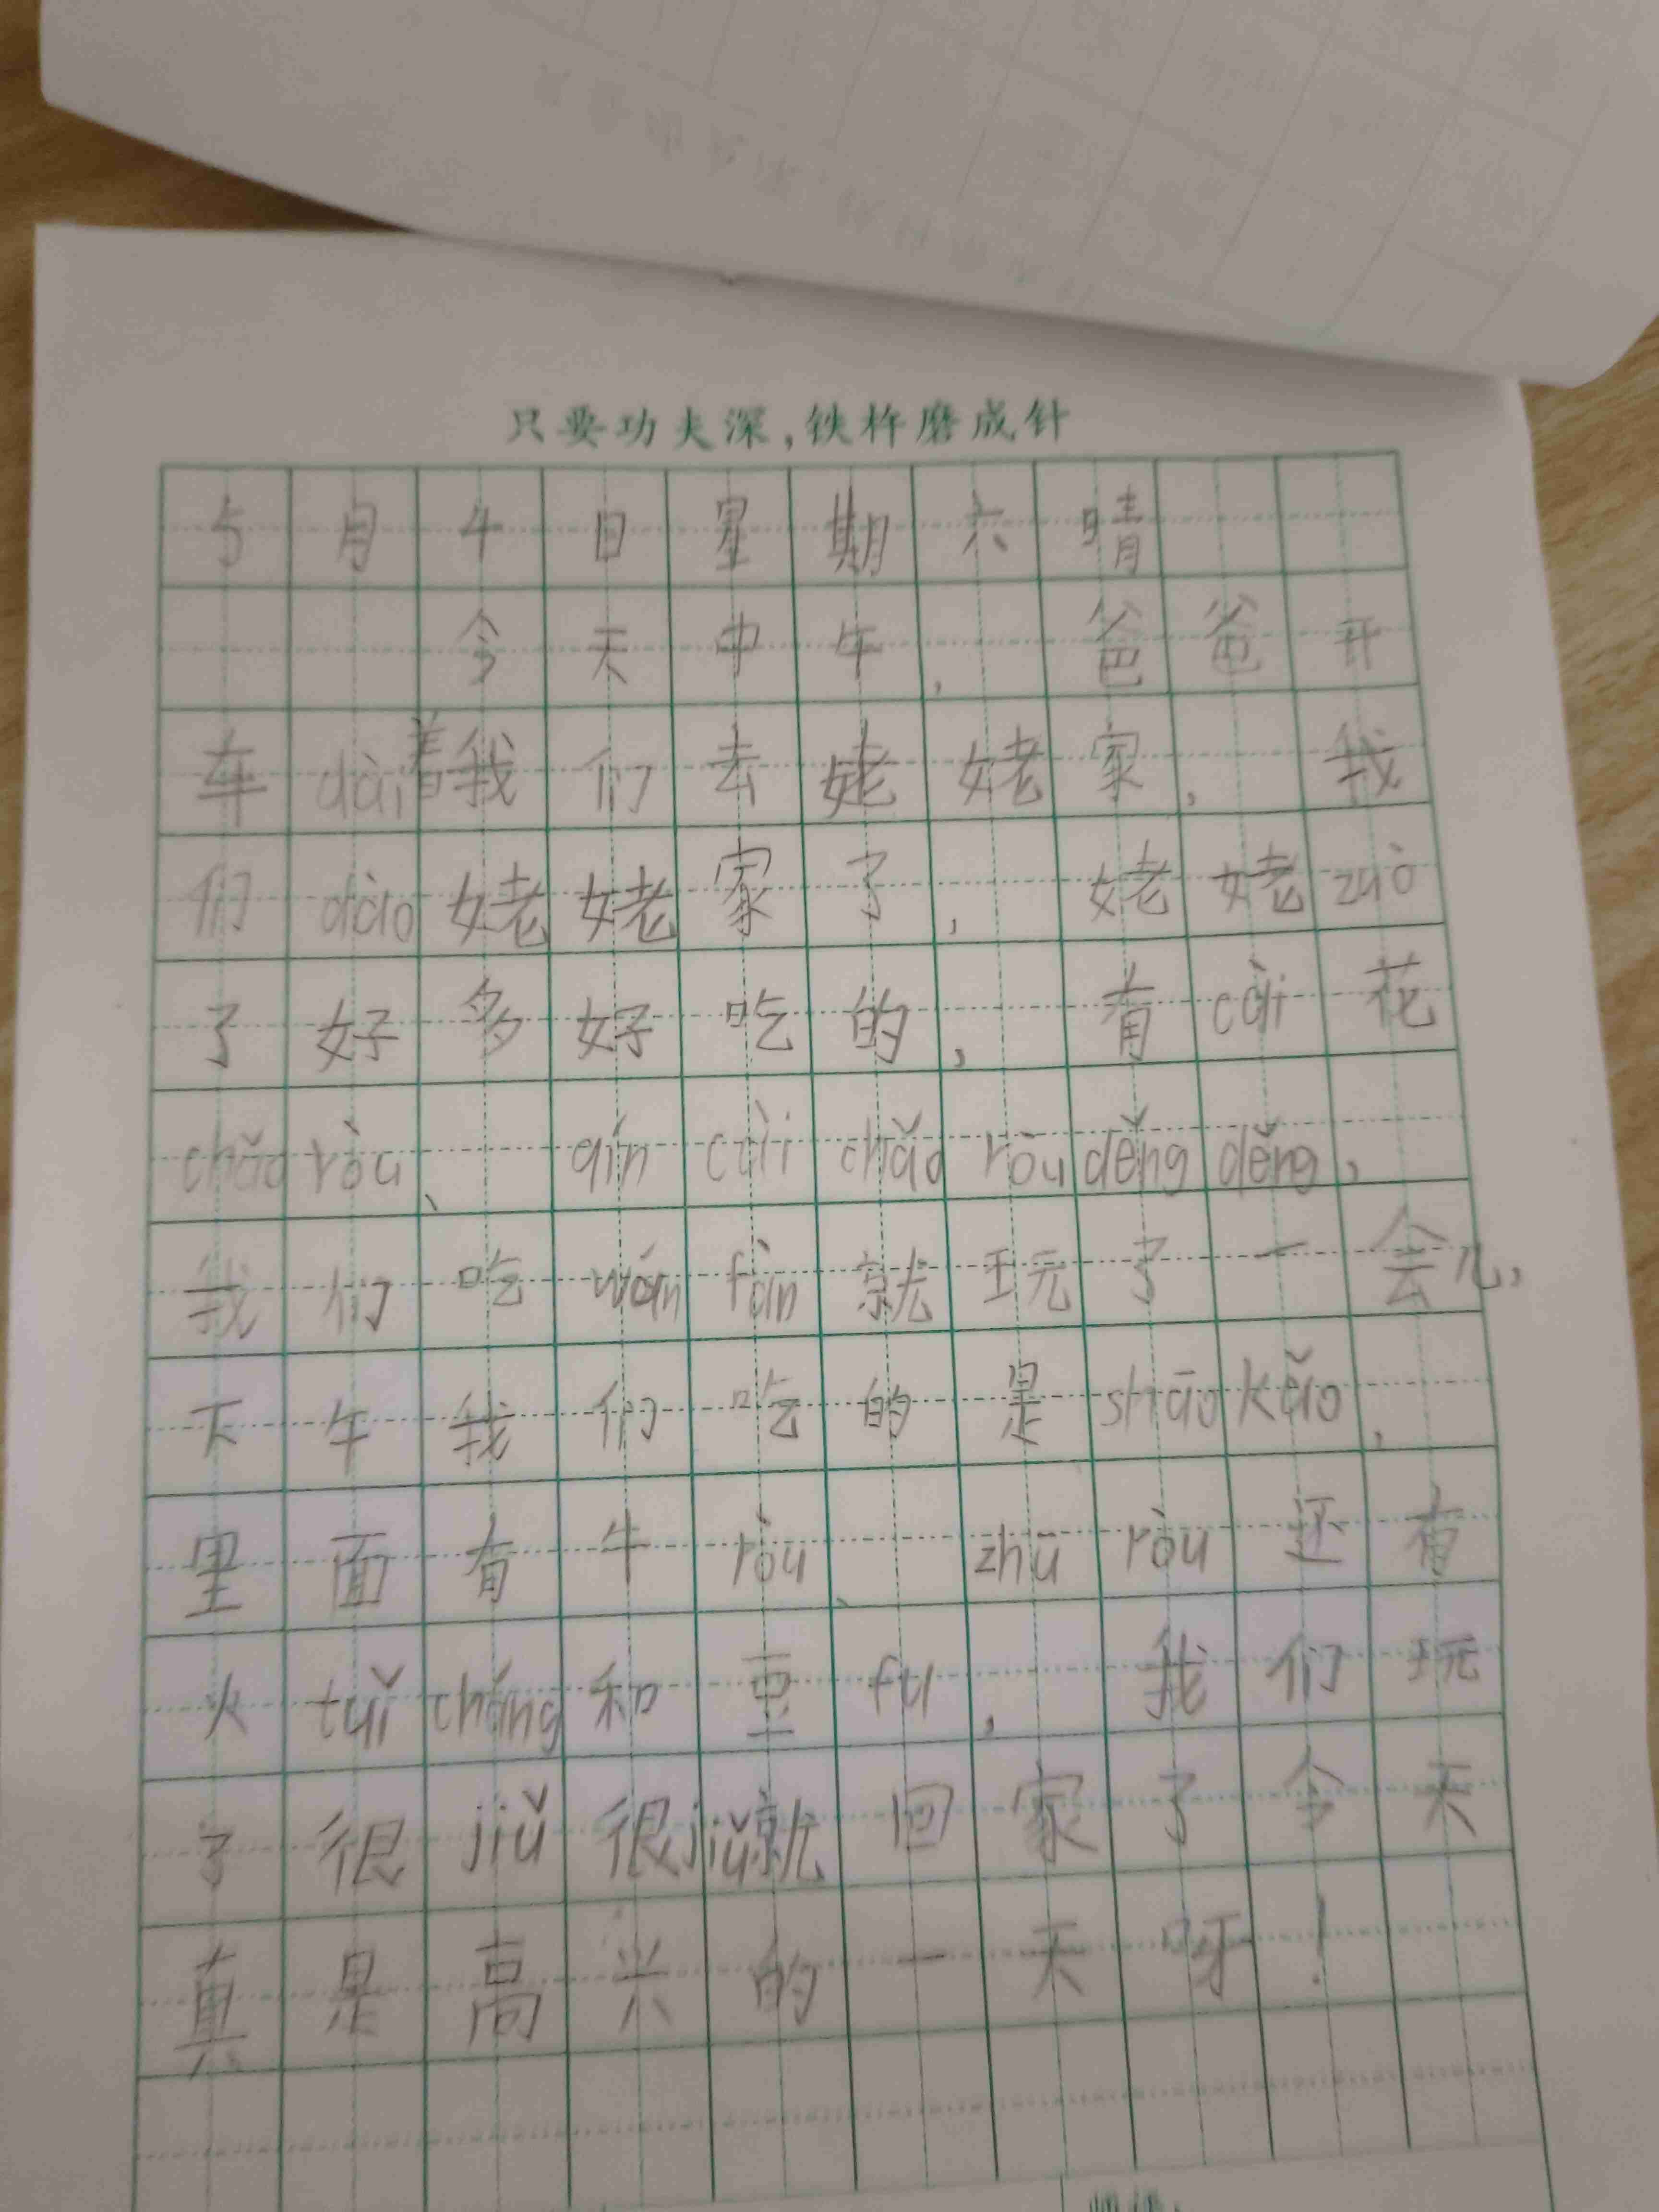 只要功夫深,铁杵磨成针
5月4日星期六晴
今天中午,爸爸开
车dài着我们去姥姥家,我
们dào姥姥家了,姥姥zuò
了好多好吃的,有cài花
chǎo ròu、qín cài chǎo ròu děng děng,
我们吃wán fàn就玩了一会儿,
下午我们吃的是shāo kǎo,
里面有牛ròu、zhū ròu还有
火tuǐ cháng和豆fu,我们玩
了很jiǔ很jiǔ就回家了今天
真是高兴的一天呀!